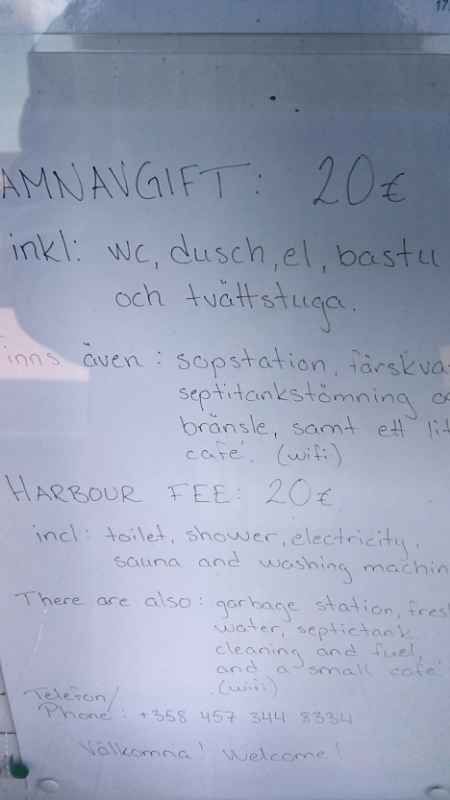 17
AMNAVGIFT: 20€
inkl: wc, dusch, el, bastu
och tvättstuga.
inns även: sopstation, färskva
septitankstömning oc
bränsle, samt ett lit
café. (wifi)
HARBOUR FEE: 20€
incl: toilet, shower, electricity,
sauna and washing machin
There are also: garbage station, fres
water, septictank
cleaning and fuel,
and a small café
(wifi)
Telefon/
Phone: +358 457 344 8334
Välkomna! Welcome!